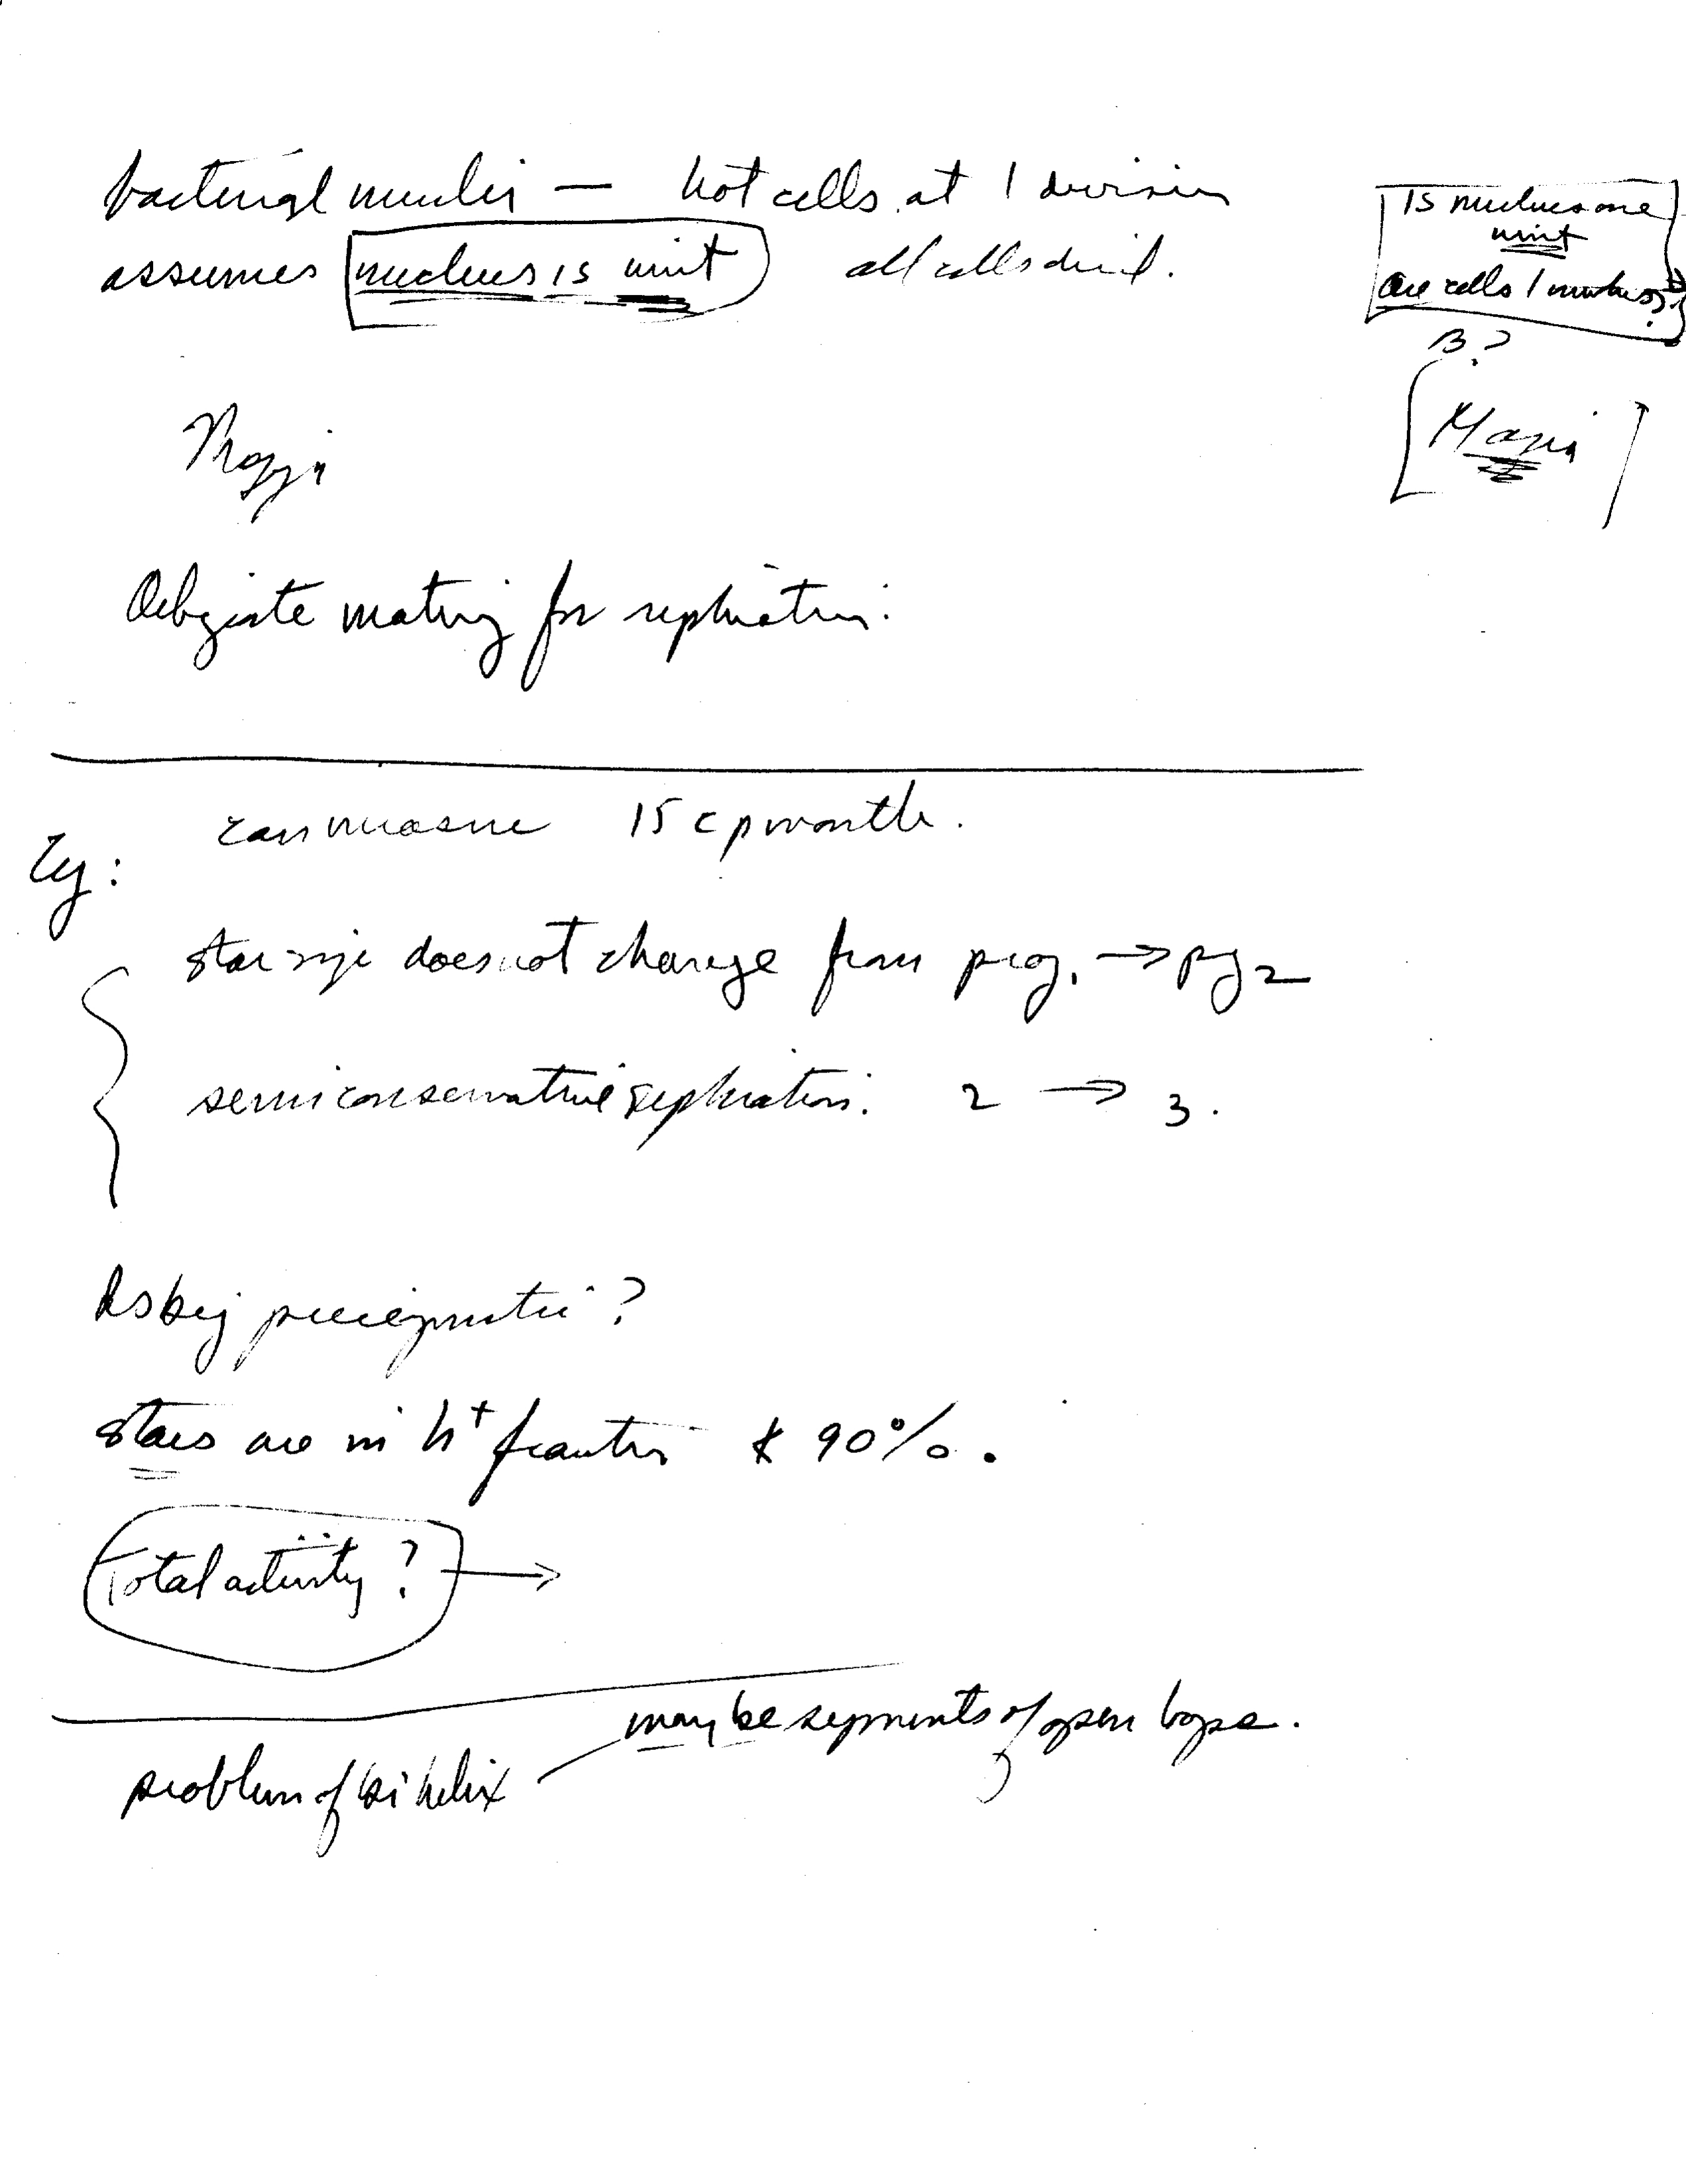 bacterial nuclei — hot cells at 1 division
assumes nucleus is unit all cells divid.
Is nucleus one
unit
are cells 1 nucleus?
B?
Mazia
Obligate mating for replication.
can measure 15 c p month.
star size does not change from prog. 1 → prog 2
semiconservative replication. 2 → 3.
stars are in h+ fraction 90%.
Total activity? →
may be segments of open
problem of bi helix